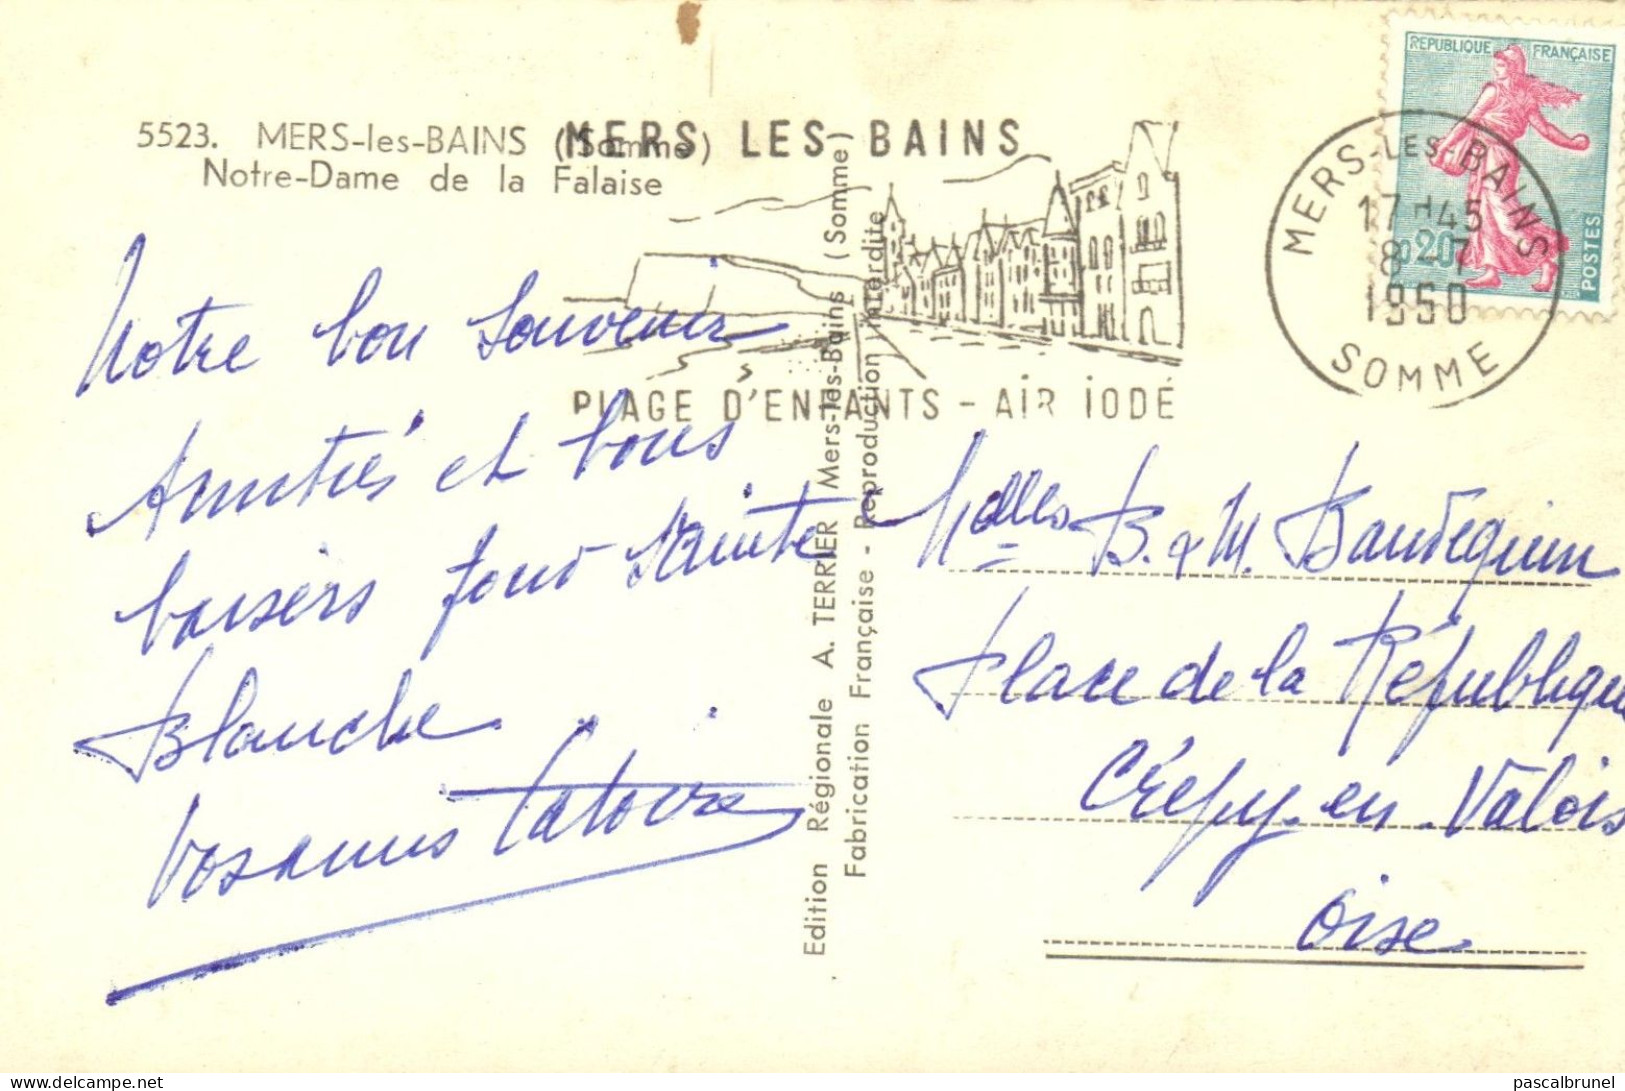 5523. MERS-les-BAINS (Somme)
Notre-Dame de la Falaise
MERS LES BAINS
PLAGE D'ENFANTS - AIR IODÉ
REPUBLIQUE FRANÇAISE
0,20
POSTES
MERS-LES-BAINS
17H45
8 - 7
1960
SOMME
Notre bon Souvenir
Amitiés et bons
baisers pour Sainte
Blanche.
Vos amis Latoire
Edition Régionale A. TERRIER Mers-les-Bains (Somme)
Fabrication Française - Reproduction interdite
Melles B. & M. Baudequin
Place de la République
Crépy-en-Valois
Oise
pascalbrunel